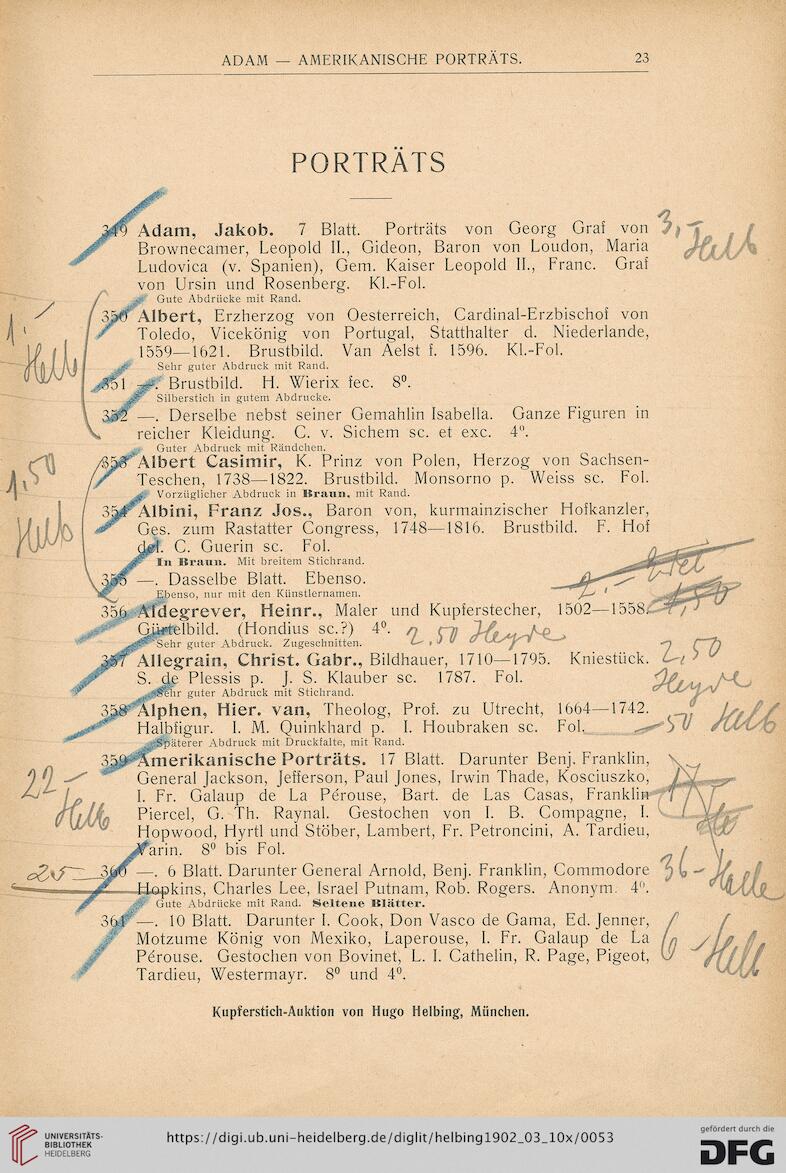 ADAM — AMERIKANISCHE PORTRÄTS. 23
PORTRÄTS
349 Adam, Jakob. 7 Blatt. Porträts von Georg Graf von
Brownecamer, Leopold II., Gideon, Baron von Loudon, Maria
Ludovica (v. Spanien), Gem. Kaiser Leopold II., Franc. Graf
von Ursin und Rosenberg. Kl.-Fol.
Gute Abdrücke mit Rand.
3,-
Helb
350 Albert, Erzherzog von Oesterreich, Cardinal-Erzbischof von
Toledo, Vicekönig von Portugal, Statthalter d. Niederlande,
1559—1621. Brustbild. Van Aelst f. 1596. Kl.-Fol.
Sehr guter Abdruck mit Rand.
1.-
Helb
351 —. Brustbild. H. Wierix fec. 8⁰.
Silberstich in gutem Abdrucke.
352 —. Derselbe nebst seiner Gemahlin Isabella. Ganze Figuren in
reicher Kleidung. C. v. Sichem sc. et exc. 4⁰.
Guter Abdruck mit Rändchen.
353 Albert Casimir, K. Prinz von Polen, Herzog von Sachsen-
Teschen, 1738—1822. Brustbild. Monsorno p. Weiss sc. Fol.
Vorzüglicher Abdruck in Braun, mit Rand.
1,50
Helb
354 Albini, Franz Jos., Baron von, kurmainzischer Hofkanzler,
Ges. zum Rastatter Congress, 1748—1816. Brustbild. F. Hof
del. C. Guerin sc. Fol.
In Braun. Mit breitem Stichrand.
355 —. Dasselbe Blatt. Ebenso.
Ebenso, nur mit den Künstlernamen.
2.-
356 Aldegrever, Heinr., Maler und Kupferstecher, 1502—1558. 1,50
Gürtelbild. (Hondius sc.?) 4⁰. 2.50 Heyde
Sehr guter Abdruck. Zugeschnitten.
357 Allegrain, Christ. Gabr., Bildhauer, 1710—1795. Kniestück. 2,50
S. de Plessis p. J. S. Klauber sc. 1787. Fol. Heyde
Sehr guter Abdruck mit Stichrand.
358 Alphen, Hier. van, Theolog, Prof. zu Utrecht, 1664—1742.
Halbfigur. I. M. Quinkhard p. I. Houbraken sc. Fol. —50 Helb
Späterer Abdruck mit Druckfalte, mit Rand.
359 Amerikanische Porträts. 17 Blatt. Darunter Benj. Franklin,
General Jackson, Jefferson, Paul Jones, Irwin Thade, Kosciuszko,
I. Fr. Galaup de La Pérouse, Bart. de Las Casas, Franklin
Piercel, G. Th. Raynal. Gestochen von I. B. Compagne, I.
Hopwood, Hyrtl und Stöber, Lambert, Fr. Petroncini, A. Tardieu,
Varin. 8⁰ bis Fol.
22-
Helb
360 —. 6 Blatt. Darunter General Arnold, Benj. Franklin, Commodore
Hopkins, Charles Lee, Israel Putnam, Rob. Rogers. Anonym. 4⁰.
Gute Abdrücke mit Rand. Seltene Blätter.
25-
36- Halle
361 —. 10 Blatt. Darunter I. Cook, Don Vasco de Gama, Ed. Jenner,
Motzume König von Mexiko, Laperouse, I. Fr. Galaup de La
Pérouse. Gestochen von Bovinet, L. I. Cathelin, R. Page, Pigeot,
Tardieu, Westermayr. 8⁰ und 4⁰.
6- Helb
Kupferstich-Auktion von Hugo Helbing, München.
UNIVERSITÄTS-
BIBLIOTHEK
HEIDELBERG
https://digi.ub.uni-heidelberg.de/diglit/helbing1902_03_10x/0053
gefördert durch die
DFG